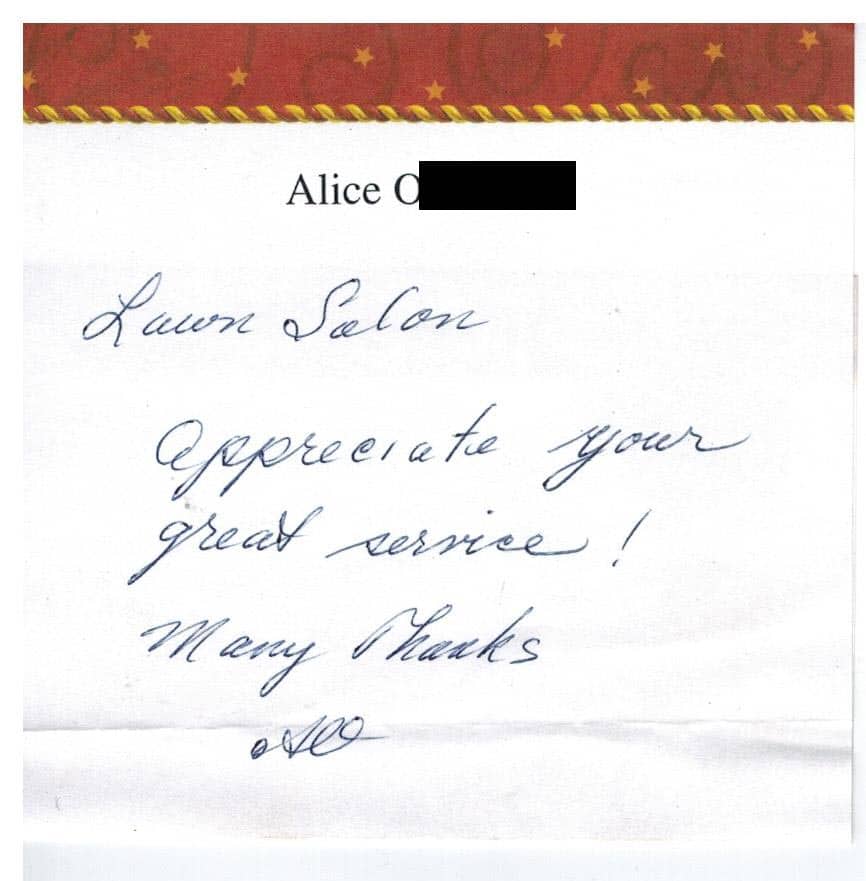 Alice O
Lawn Salon
Appreciate your
great service!
Many Thanks